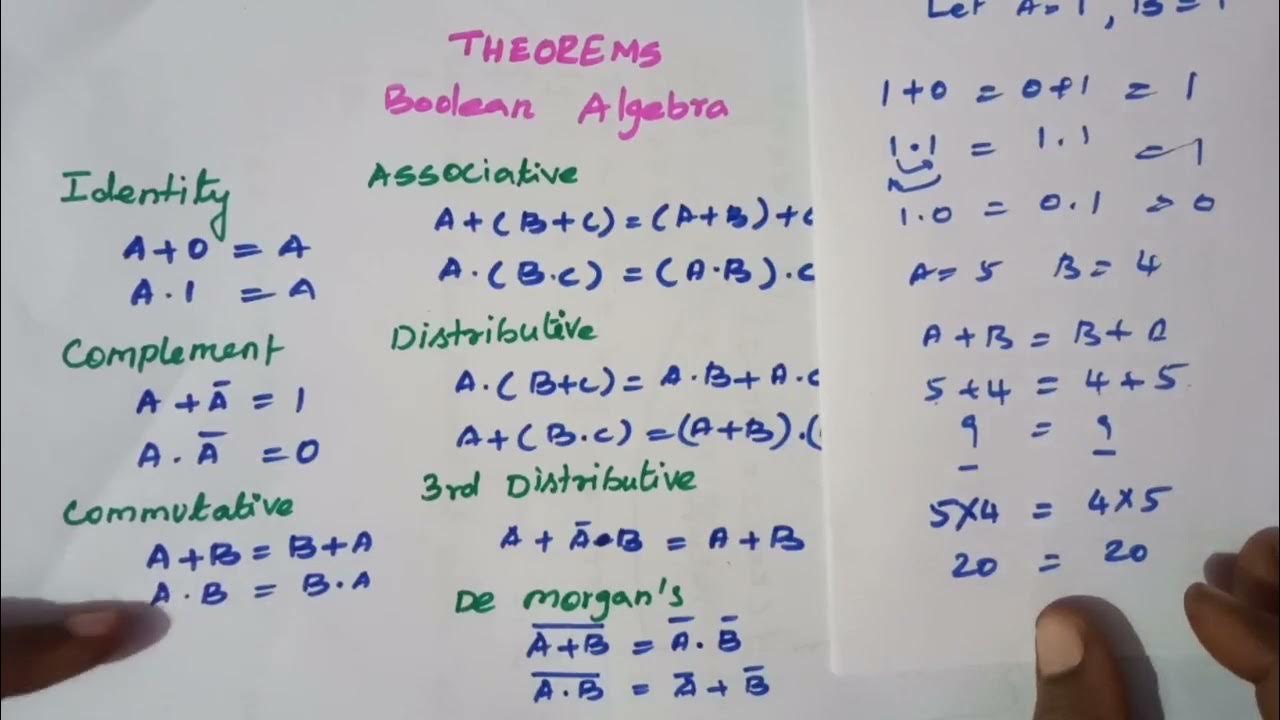 THEOREMS
Boolean Algebra
Identity
A + 0 = A
A · 1 = A
Complement
A + Ā = 1
A · Ā = 0
Commutative
A + B = B + A
A · B = B · A
Associative
A + (B + C) = (A + B) + C
A · (B · C) = (A · B) · C
Distributive
A · (B + C) = A · B + A · C
A + (B · C) = (A + B) · (
3rd Distributive
A + Ā · B = A + B
De morgan's
A̅+̅B̅ = A̅ · B̅
A̅·̅B̅ = A̅ + B̅
Let A = 1, B = 1
1 + 0 = 0 + 1 = 1
1 · 1 = 1 · 1 = 1
1 · 0 = 0 · 1 = 0
A = 5 B = 4
A + B = B + A
5 + 4 = 4 + 5
9 = 9
5 × 4 = 4 × 5
20 = 20